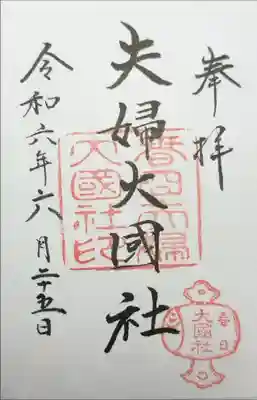 奉拝
夫婦大國社
春日夫婦
大國社印
令和六年六月二十五日
春日
大國社